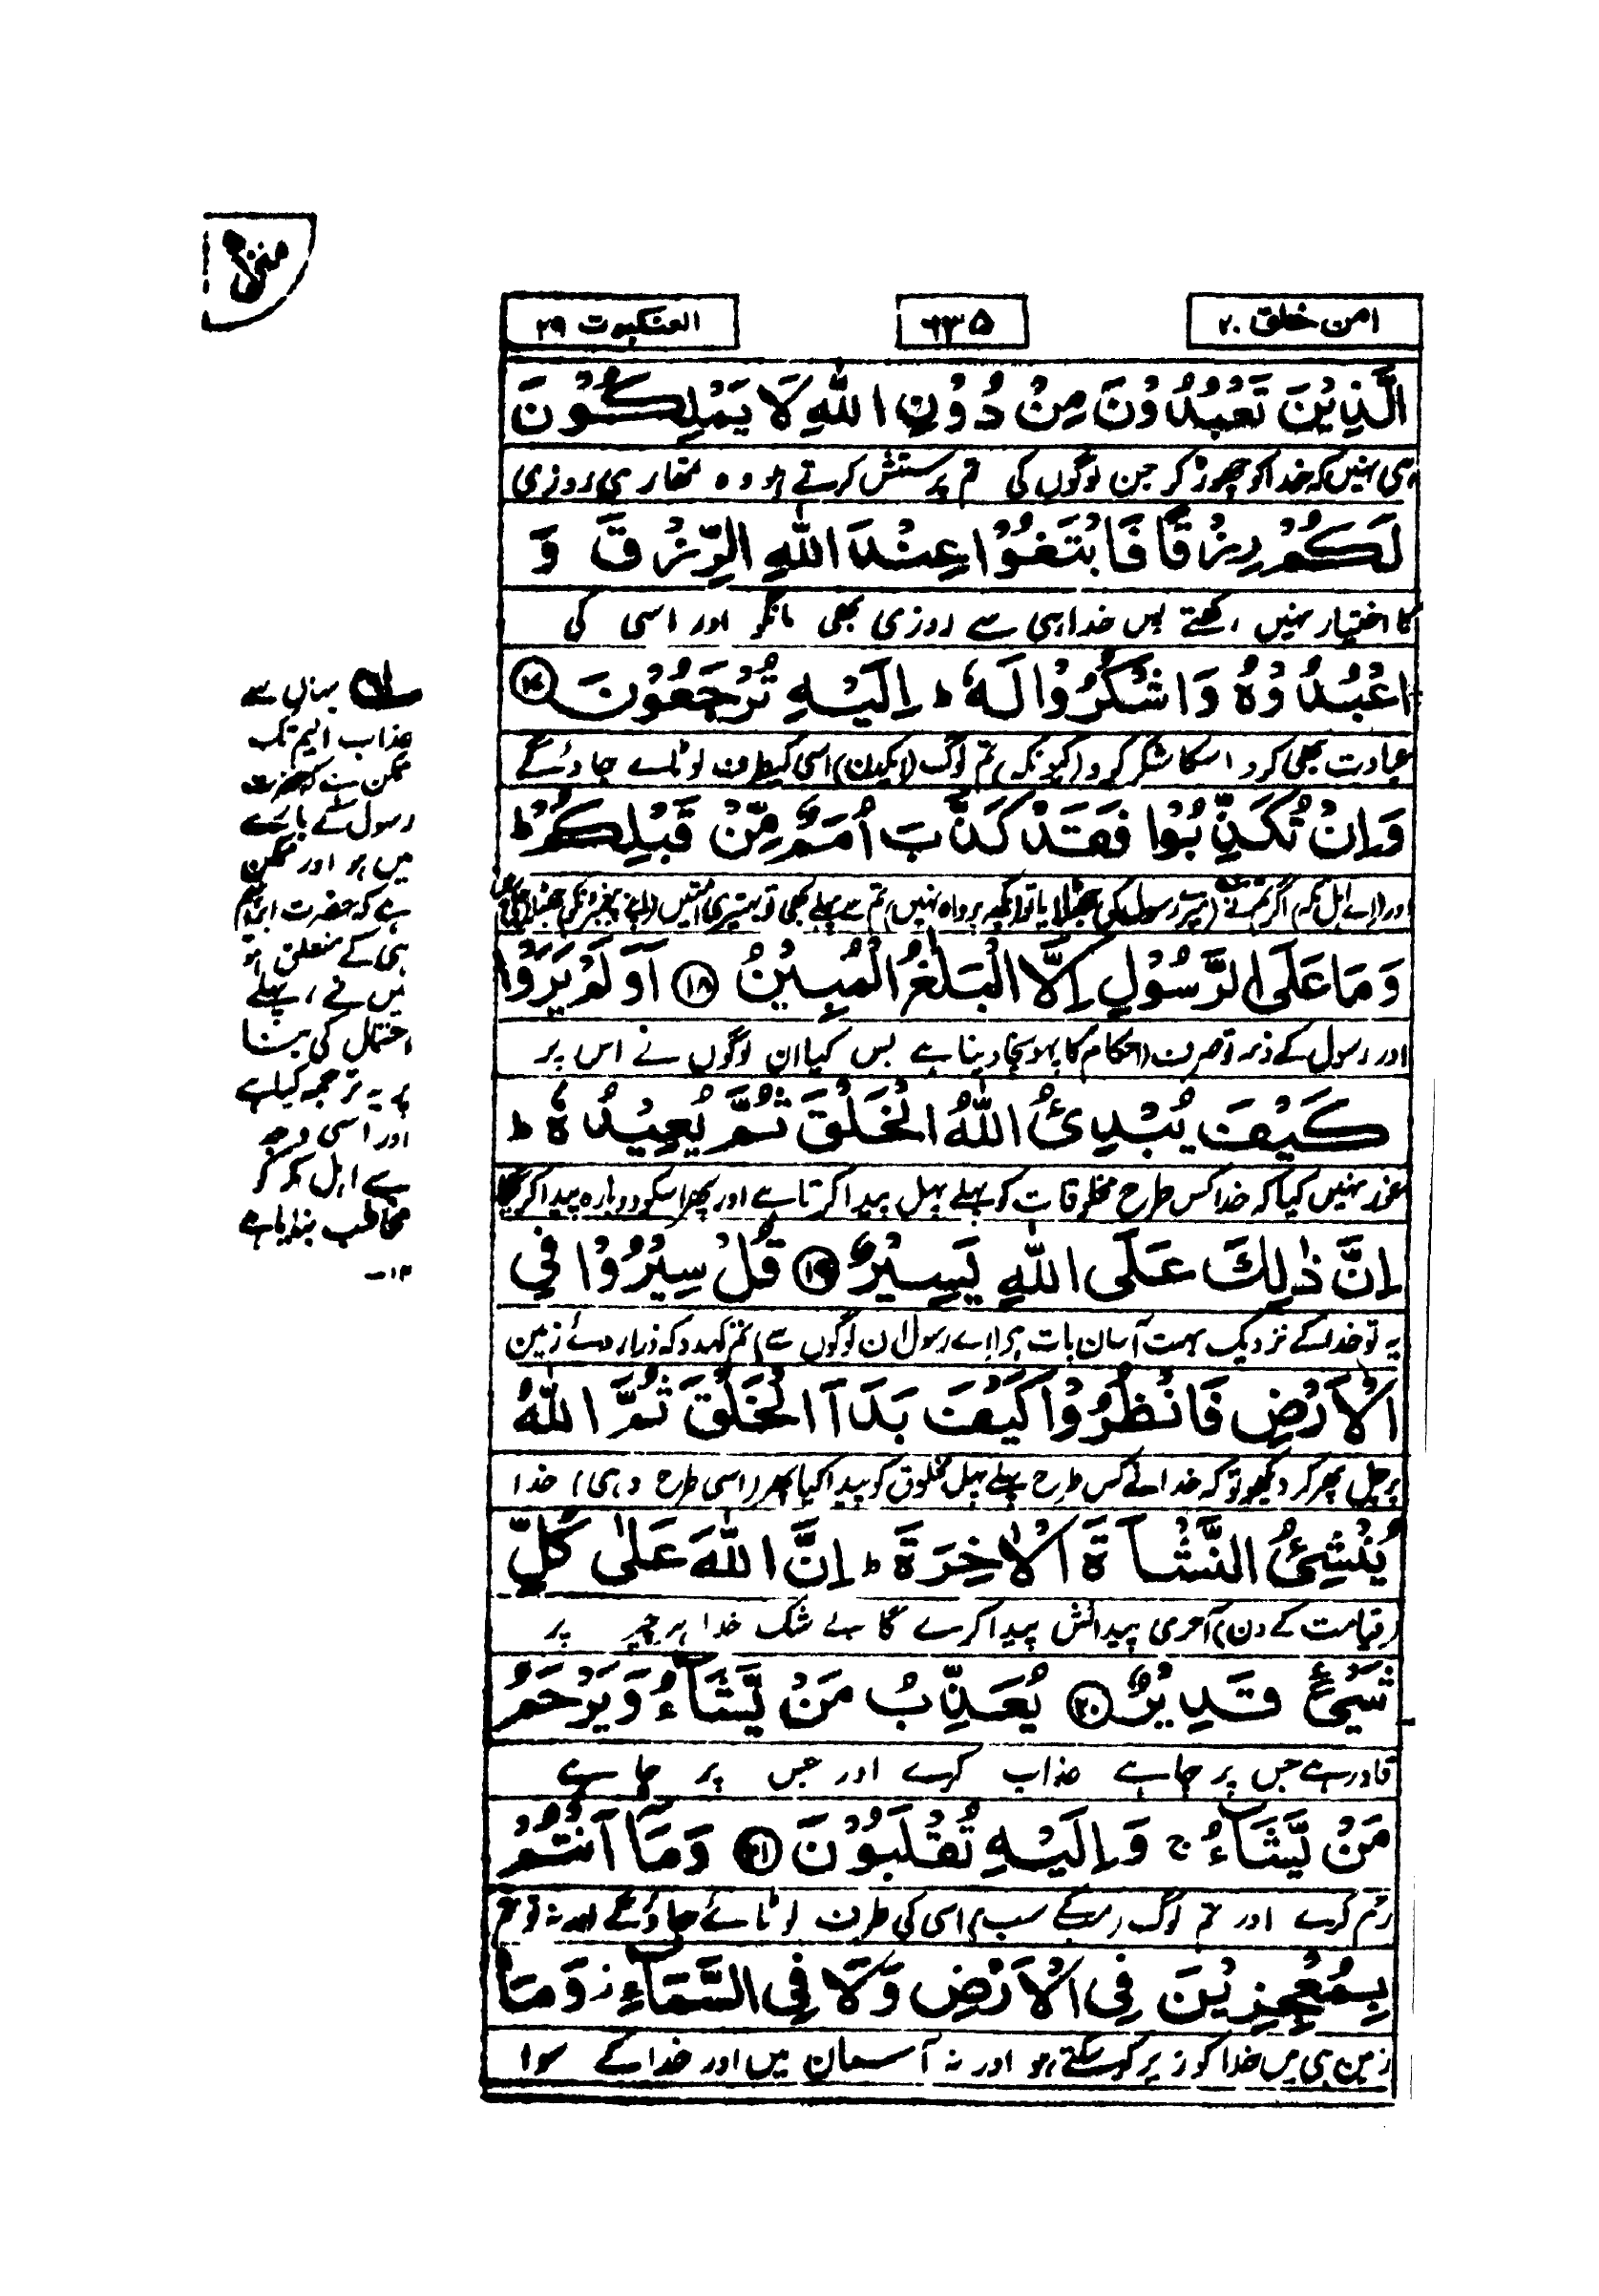 امن خلق ۲۰
۶۳۵
العنکبوت ۲۹
الَّذِيْنَ تَعْبُدُوْنَ مِنْ دُوْنِ اللّٰهِ لَا يَمْلِكُوْنَ
ہی نہیں کہ خدا کو چھوڑ کر جن لوگوں کی تم پرستش کرتے ہو وہ تمھاری روزی
لَكُمْ رِزْقًا فَابْتَغُوْا عِنْدَ اللّٰهِ الرِّزْقَ وَ
کا اختیار نہیں رکھتے بس خدا ہی سے روزی بھی مانگو اور اسی کی
اعْبُدُوْهُ وَاشْكُرُوْا لَهٗ ؕ اِلَيْهِ تُرْجَعُوْنَ ۱۷
عبادت بھی کرو اسکا شکر کرو (کیونکہ) تم لوگ (ایکدن) اسی کیطرف لوٹائے جاؤ گے
وَاِنْ تُكَذِّبُوْا فَقَدْ كَذَّبَ اُمَمٌ مِّنْ قَبْلِكُمْ ؕ
اور (اے اہل مکہ) اگر تم نے (میرے رسول کو) جھٹلایا تو (کچھ پرواہ نہیں) تم سے پہلے بھی تو بہتیری امتیں (اپنے پیغمبرونکو) جھٹلا چکی ہیں
وَمَا عَلَى الرَّسُوْلِ اِلَّا الْبَلٰغُ الْمُبِيْنُ ۱۸ اَوَلَمْ يَرَوْا
اور رسول کے ذمہ تو صرف (احکام کا) پہونچا دینا ہے بس کیا ان لوگوں نے اس پر
كَيْفَ يُبْدِئُ اللّٰهُ الْخَلْقَ ثُمَّ يُعِيْدُهٗ ؕ
غور نہیں کیا کہ خدا کس طرح مخلوقات کو پہلے پہل پیدا کرتا ہے اور پھر اسکو دوبارہ پیدا کریگا
اِنَّ ذٰلِكَ عَلَى اللّٰهِ يَسِيْرٌ ۱۹ قُلْ سِيْرُوْا فِي
یہ تو خدا کے نزدیک بہت آسان بات ہی (اے رسول ان لوگوں سے) تم کہدو کہ ذرا روئے زمین
الْاَرْضِ فَانْظُرُوْا كَيْفَ بَدَاَ الْخَلْقَ ثُمَّ اللّٰهُ
پر چل پھر کر دیکھو تو کہ خدا نے کس طرح پہلے پہل مخلوق کو پیدا کیا پھر (اسی طرح وہی) خدا
يُنْشِئُ النَّشْاَةَ الْاٰخِرَةَ ؕ اِنَّ اللّٰهَ عَلٰى كُلِّ
(قیامت کے دن) آخری پیدائش پیدا کرے گا بے شک خدا ہر چیز پر
شَيْءٍ قَدِيْرٌ ۲۰ يُعَذِّبُ مَنْ يَّشَآءُ وَيَرْحَمُ
قادر ہے جس پر چاہے عذاب کرے اور جس پر چاہے
مَنْ يَّشَآءُ ج وَاِلَيْهِ تُقْلَبُوْنَ ۲۱ وَمَآ اَنْتُمْ
رحم کرے اور تم لوگ (سب کے سب) اسی کی طرف لوٹائے جاؤ گے اور نہ تو تم
بِمُعْجِزِيْنَ فِي الْاَرْضِ وَلَا فِي السَّمَآءِ ز وَمَا
زمین ہی میں خدا کو زیر کر سکتے ہو اور نہ آسمان میں اور خدا کے سوا
یہاں سے
عذاب الیم تک
ممکن ہے کہ حضرت
رسول کے بارے
میں ہو اور ممکن
ہے کہ حضرت ابراہیم
ہی کے متعلق ہو
میں نے پہلے
احتمال کی بنا
پر یہ ترجمہ کیا ہے
اور اسی وجہ
سے اہل مکہ کو
مخاطب بنایا ہے
۱۲-